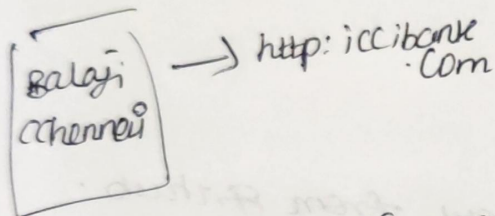 Balaji
Cchennai
http: iccibank
.com